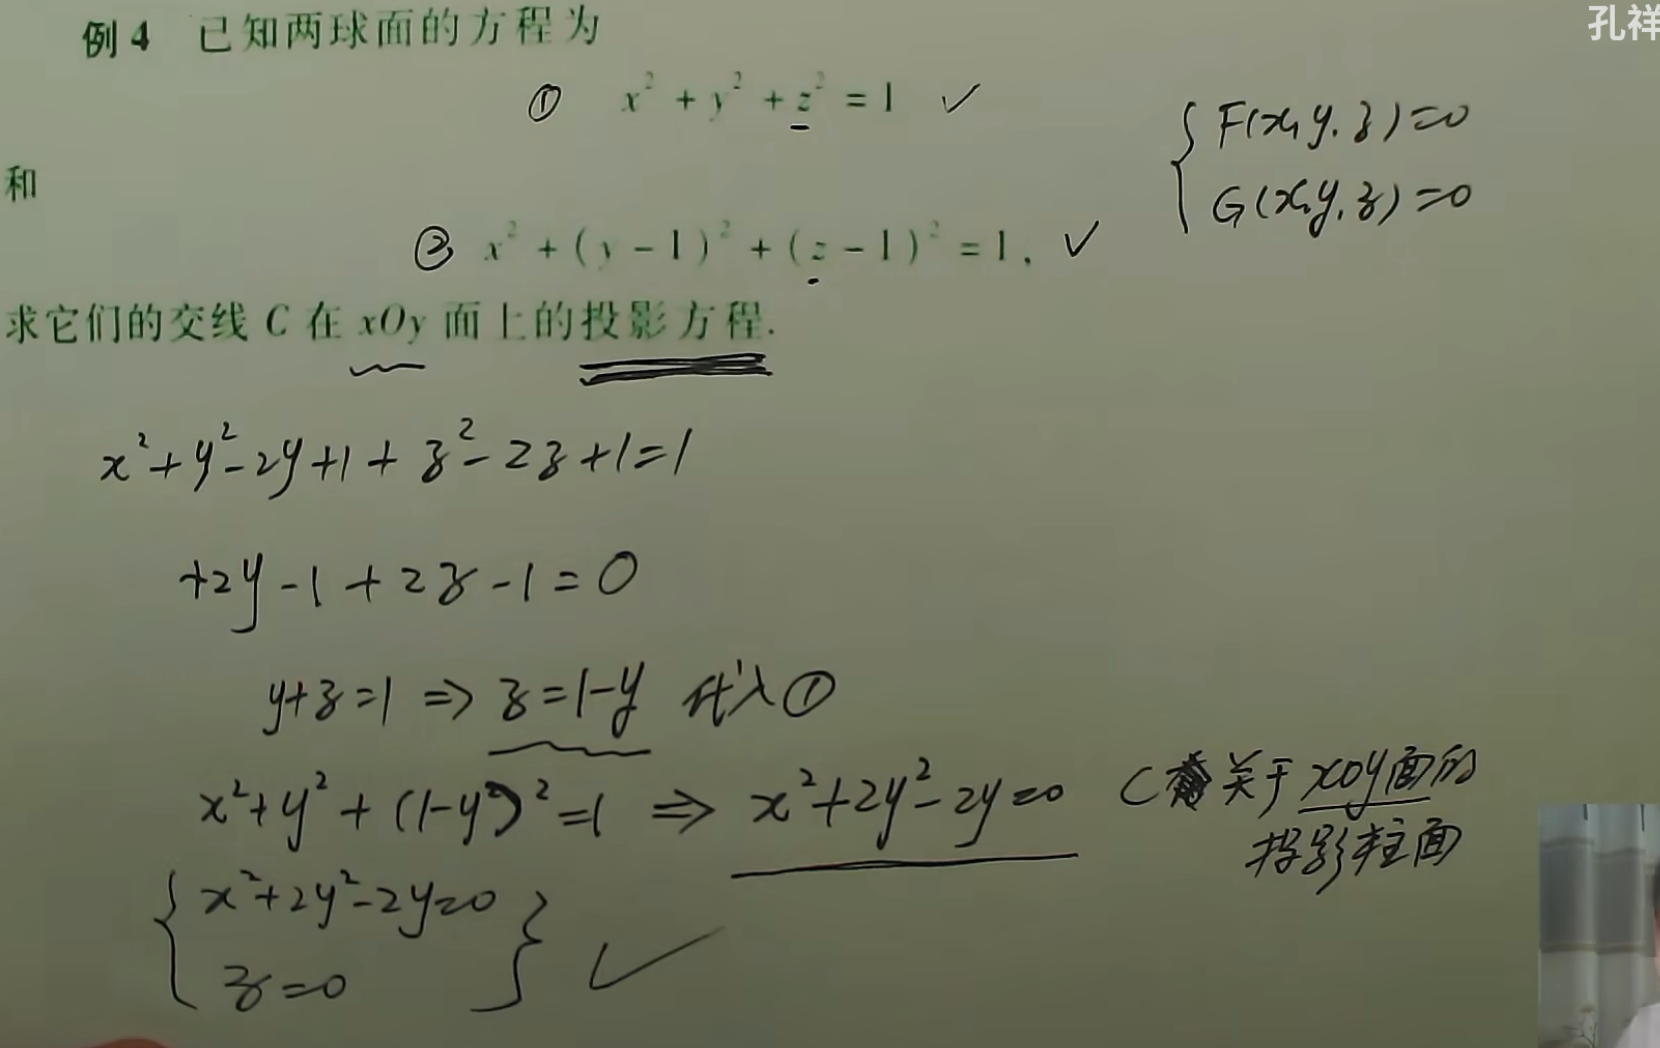 孔祥
例4 已知两球面的方程为
① x² + y² + z² = 1 ✓
和
② x² + (y - 1)² + (z - 1)² = 1, ✓
{ F(x, y, z) = 0
G(x, y, z) = 0
求它们的交线 C 在 xOy 面上的投影方程.
x² + y² - 2y + 1 + z² - 2z + 1 = 1
+2y - 1 + 2z - 1 = 0
y + z = 1 ⇒ z = 1 - y 代入①
x² + y² + (1 - y)² = 1 ⇒ x² + 2y² - 2y = 0
C 关于 xoy面的
投影柱面
{ x² + 2y² - 2y = 0
z = 0 } ✓